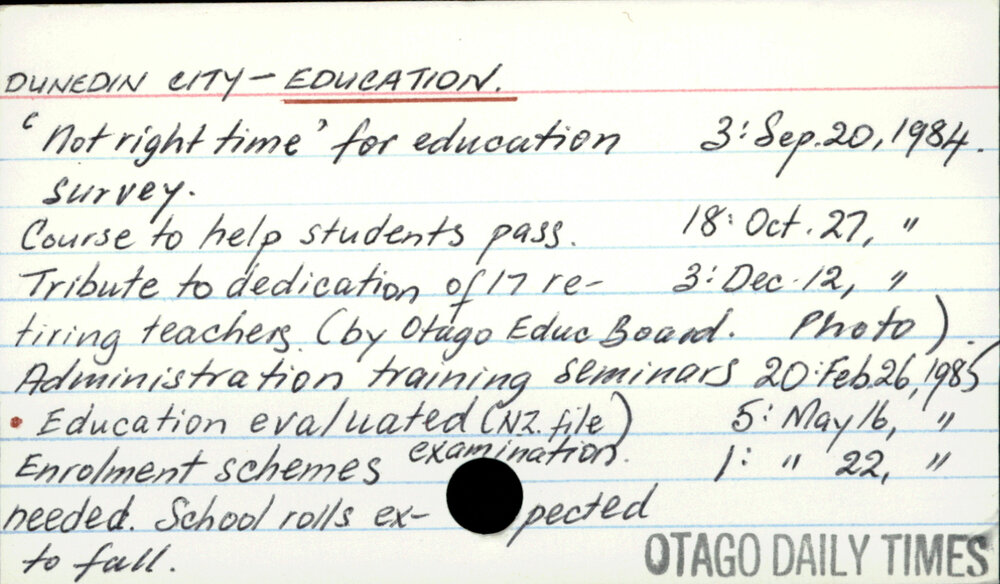 DUNEDIN CITY - EDUCATION.
'Not right time' for education 3: Sep. 20, 1984.
survey.
Course to help students pass. 18: Oct. 27, "
Tribute to dedication of 17 re- 3: Dec. 12, "
tiring teachers. (by Otago Educ Board. Photo).
Administration training seminars 20: Feb 26, 1985
• Education evaluated (NZ. file) 5: May 16, "
Enrolment schemes examination. 1: " 22, "
needed. School rolls ex-pected
to fall.
OTAGO DAILY TIMES